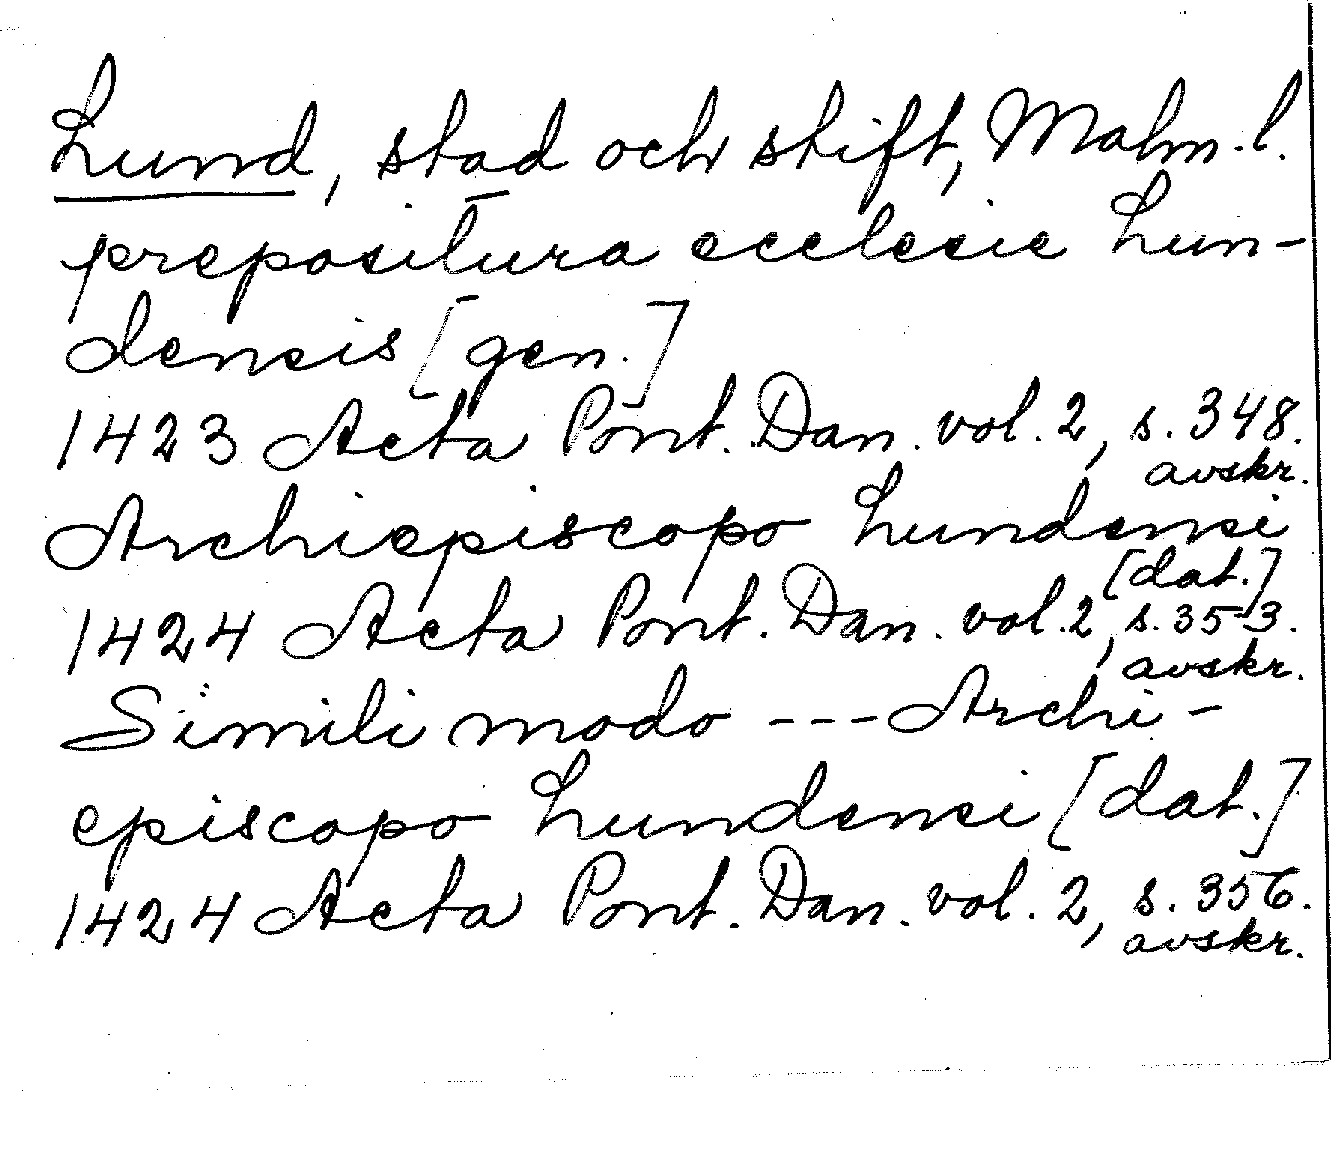 Lund, stad och stift, Malm.l.
prepositura ecclesie Lun-
densis [gen.]
1423 Acta Pont. Dan. vol. 2, s. 348.
avskr.
Archiepiscopo Lundensi
[dat.]
1424 Acta Pont. Dan. vol. 2, s. 353.
avskr.
Simili modo --- Archi-
episcopo Lundensi [dat.]
1424 Acta Pont. Dan. vol. 2, s. 356.
avskr.